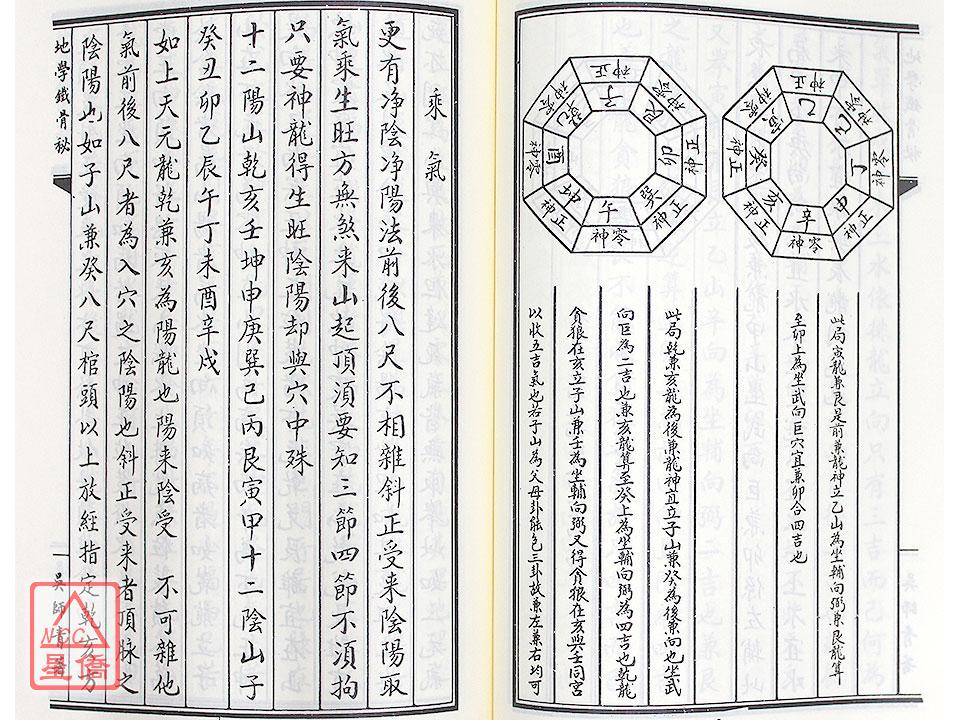 神正
乙
神零
丁
神正
申
神零
辛
亥
神正
癸
神零
寅
神正
子
神零
艮
神正
卯
神正
巽
神零
午
神正
坤
神零
酉
神零
乾
此局寅龍兼艮是前兼龍神立乙山為坐輔向弼兼艮龍算
至卯上為坐武向巨穴宜兼卯合四吉也
此局乾兼亥龍為後兼龍神宜立子山兼癸為後兼向也坐武
向巨為二吉也兼亥龍算至癸上為坐輔向弼為四吉也乾龍
貪狼在亥立子山兼壬為坐輔向弼又得貪狼在亥與壬同宮
以收五吉氣也若子山為父母卦能包三卦故兼左兼右均可
乘氣
更有净陰净陽法前後八尺不相雜斜正受來陰陽取
氣乘生旺方無煞來山起頂須要知三節四節不須拘
只要神龍得生旺陰陽却與穴中殊
十二陽山乾亥壬坤申庚巽巳丙艮寅甲十二陰山子
癸丑卯乙辰午丁未酉辛戍
如上天元龍乾兼亥為陽龍也陽來陰受 不可雜他
氣前後八尺者為入穴之陰陽也斜正受來者頂脉之
陰陽也如子山兼癸八尺棺頭以上放經指定乾亥方
地學鐵骨秘
吳師青著
NCC
星僑